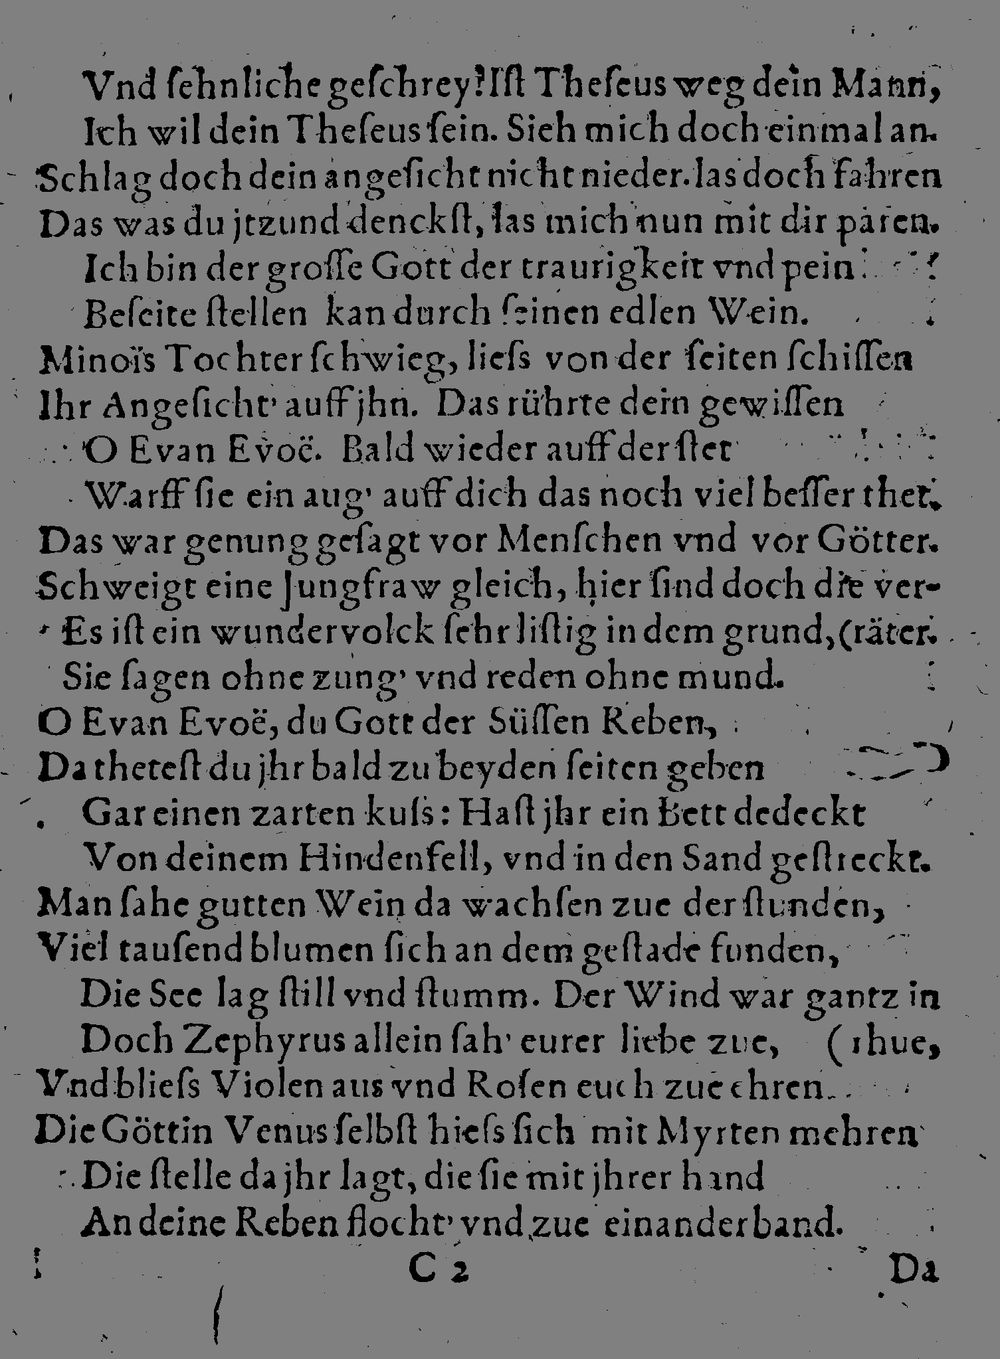 Vnd ſehnliche geſchrey? Iſt Theſeus weg dein Mann,
Ich wil dein Theſeus ſein. Sieh mich doch einmal an.
Schlag doch dein angeſicht nicht nieder. las doch fahren
Das was du jtzund denckſt, las mich nun mit dir paren.
Ich bin der groſſe Gott der traurigkeit vnd pein
Beſeite ſtellen kan durch ſeinen edlen Wein.
Minoïs Tochter ſchwieg, lieſs von der ſeiten ſchiſſen
Ihr Angeſicht' auff jhn. Das rührte dein gewiſſen
O Evan Evoë. Bald wieder auff der ſtet
Warff ſie ein aug' auff dich das noch viel beſſer thet.
Das war genung geſagt vor Menſchen vnd vor Götter.
Schweigt eine Jungfraw gleich, hier ſind doch die ver-
Es iſt ein wundervolck ſehr liſtig in dem grund, (räter.
Sie ſagen ohne zung' vnd reden ohne mund.
O Evan Evoë, du Gott der Süſſen Reben,
Da theteſt du jhr bald zu beyden ſeiten geben
Gar einen zarten kuſs: Haſt jhr ein Bett dedeckt
Von deinem Hindenfell, vnd in den Sand geſtreckt.
Man ſahe gutten Wein da wachſen zue der ſtunden,
Viel tauſend blumen ſich an dem geſtade funden,
Die See lag ſtill vnd ſtumm. Der Wind war gantz in
Doch Zephyrus allein ſah' eurer liebe zue, (rhue,
Vnd blieſs Violen aus vnd Roſen euch zue ehren.
Die Göttin Venus ſelbſt hieſs ſich mit Myrten mehren
Die ſtelle da jhr lagt, die ſie mit jhrer hand
An deine Reben flocht' vnd zue einander band.
C 2 Da